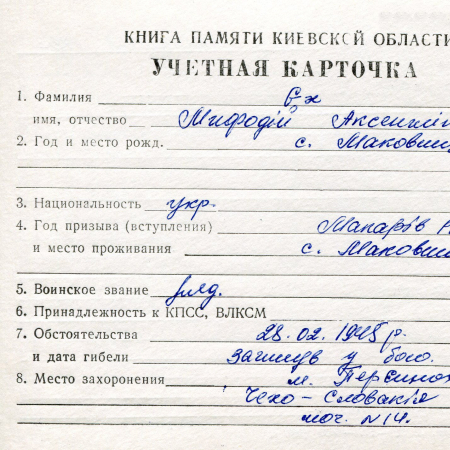 КНИГА ПАМЯТИ КИЕВСКОЙ ОБЛАСТИ
УЧЕТНАЯ КАРТОЧКА
1. Фамилия
имя, отчество Мифодій
2. Год и место рожд. с. Маковищ
3. Национальность укр.
4. Год призыва (вступления) Макарів
и место проживания с. Маковищ
5. Воинское звание ряд.
6. Принадлежность к КПСС, ВЛКСМ
7. Обстоятельства 28.02.1945 р.
и дата гибели Загинув у бою.
8. Место захоронения м.
Чехо-Словакія
мог. N 14.